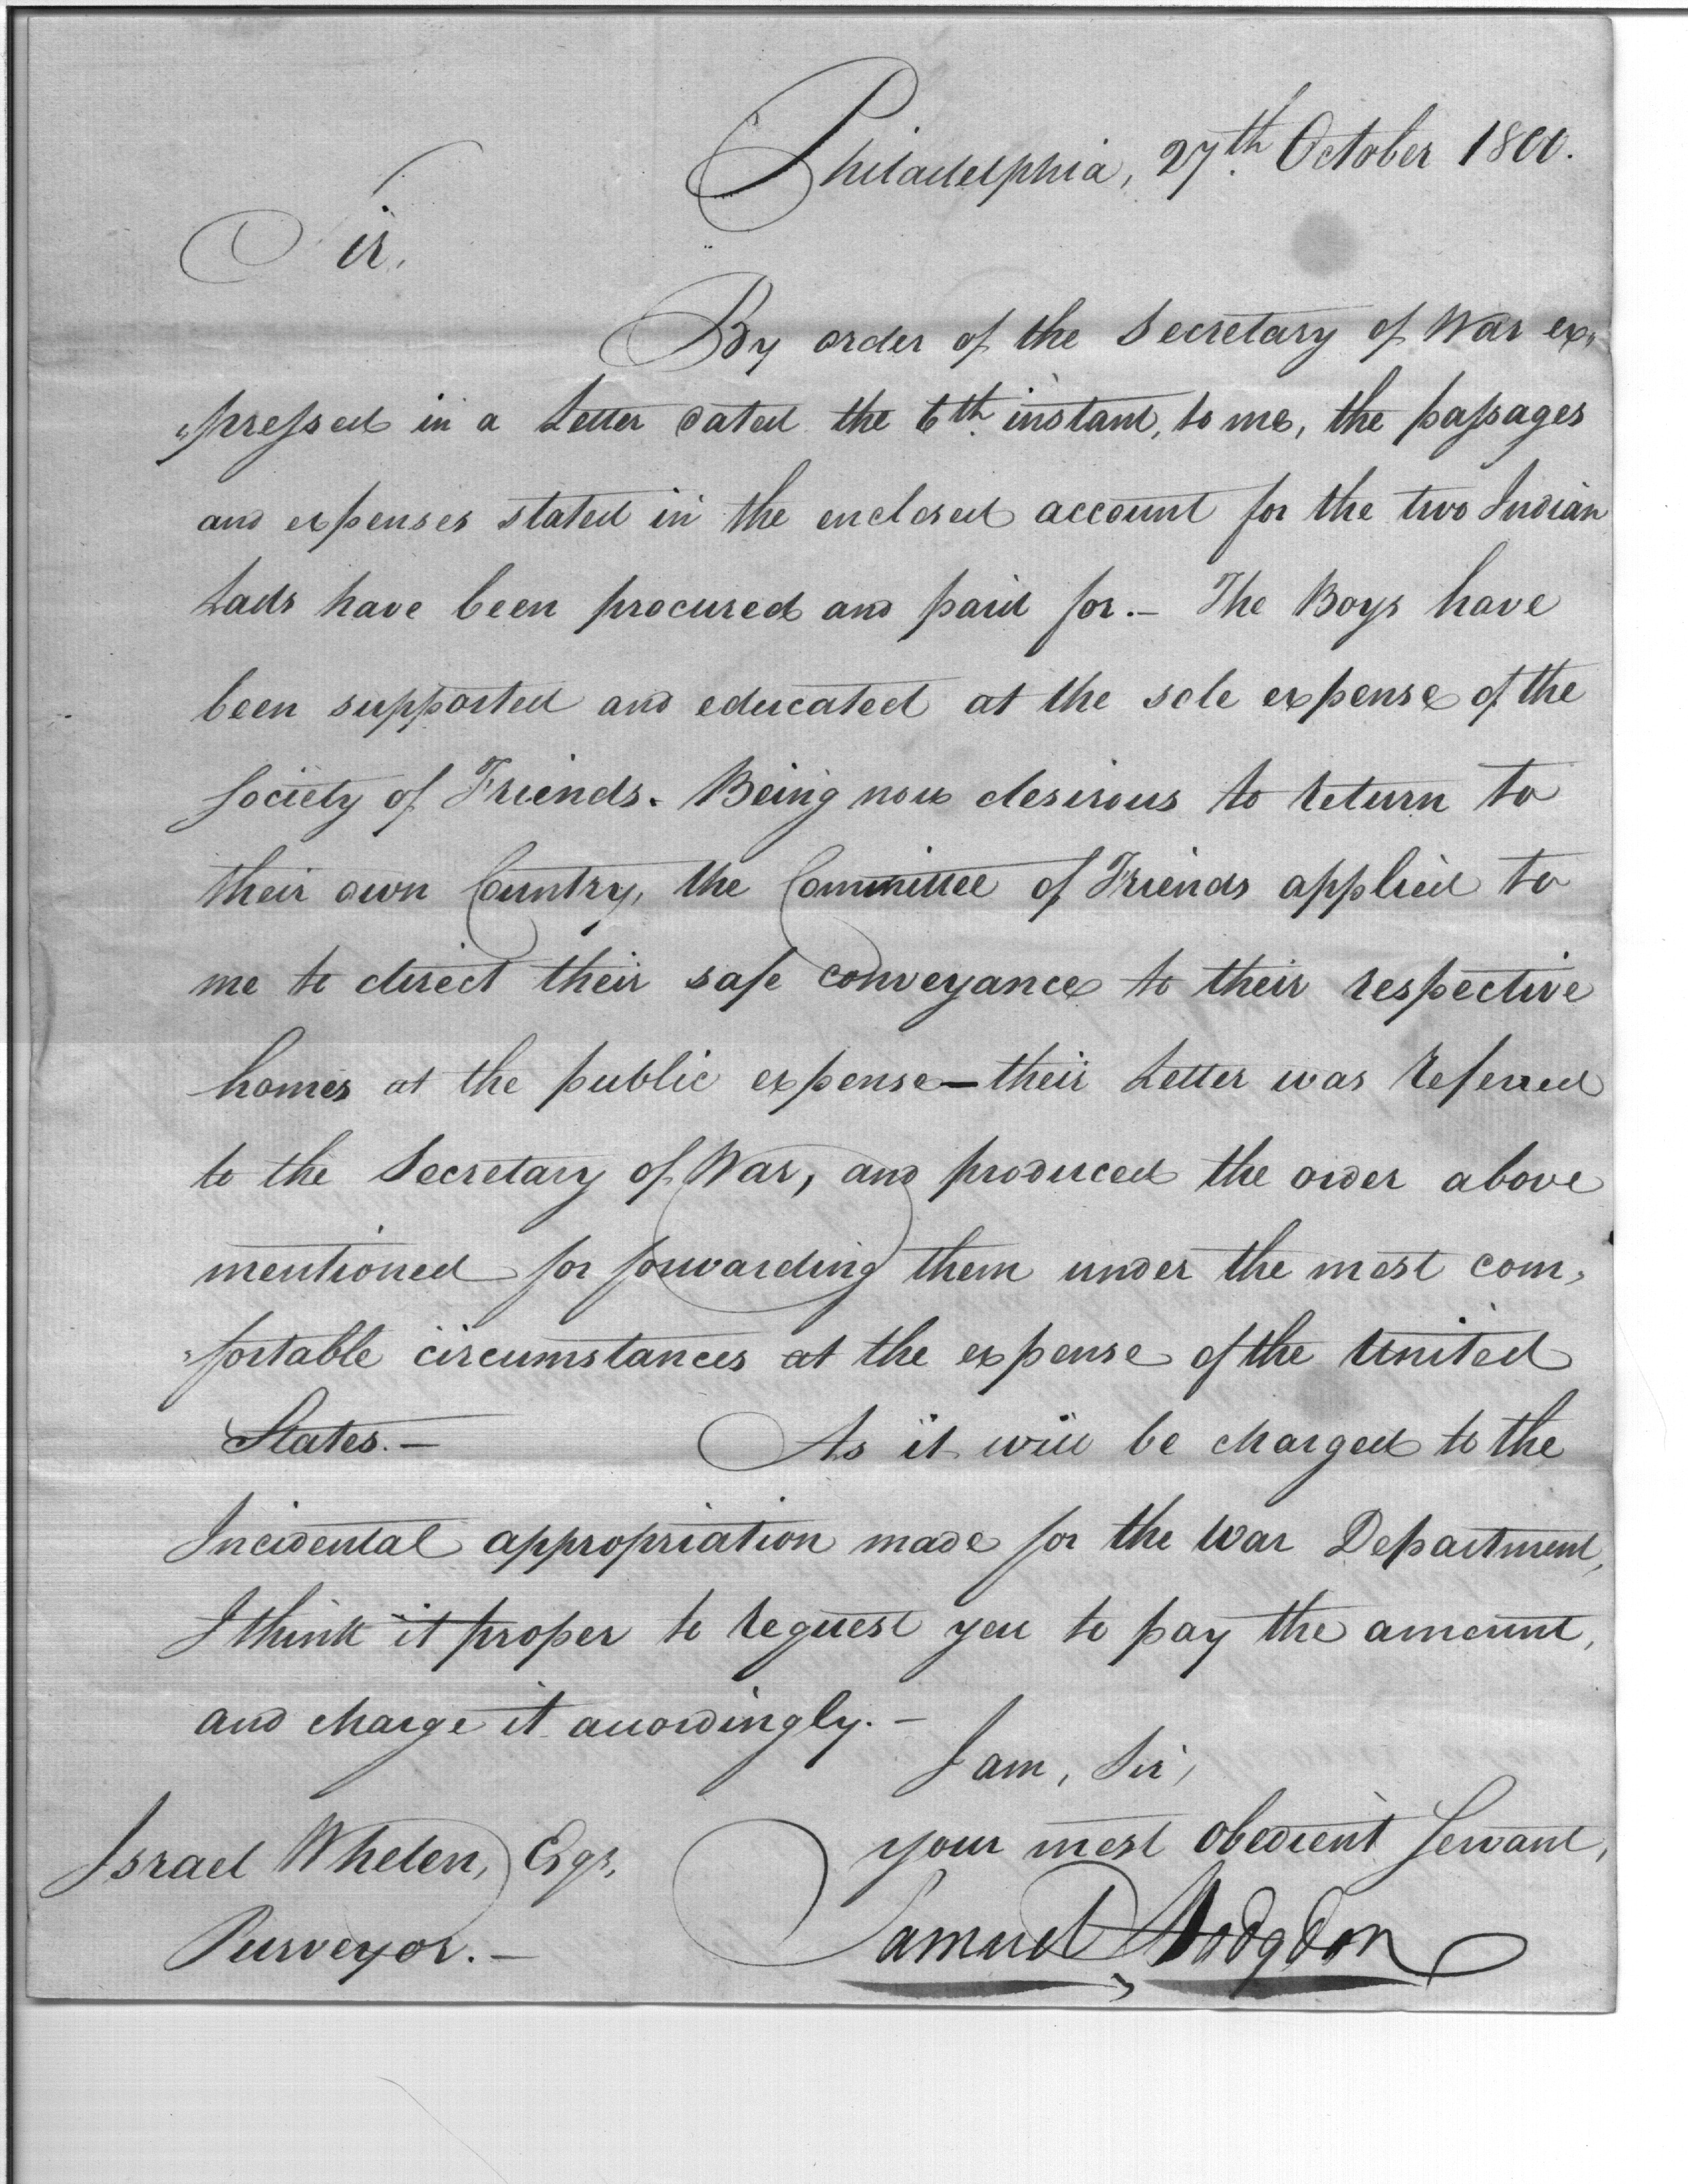 Philadelphia, 27th. October 1800.
Sir,
By order of the Secretary of War ex„
„pressed in a Letter dated the 6th. instant, to me, the passages
and expenses stated in the enclosed account for the two Indian
Lads have been procured and paid for.— The Boys have
been supported and educated at the sole expense of the
Society of Friends. Being now desirous to return to
their own Country, the Committee of Friends applied to
me to direct their safe conveyance to their respective
homes at the public expense—their Letter was referred
to the Secretary of War, and produced the order above
mentioned for forwarding them under the most com„
„fortable circumstances at the expense of the United
States.— As it will be charged to the
Incidental appropriation made for the War Department,
I think it proper to request you to pay the amount,
and charge it accordingly.—
I am, Sir,
your most obedient Servant,
Israel Whelen, Esqr.
Samuel Hodgdon
Purveyor.—